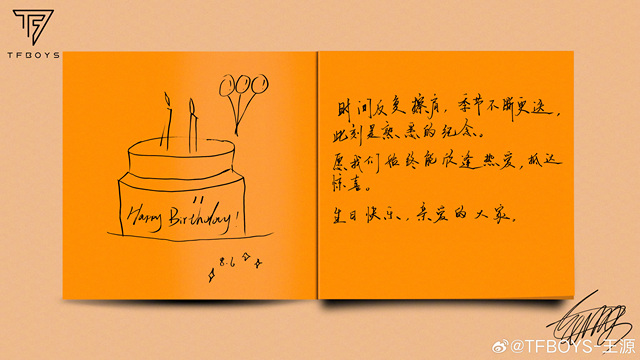 TFBOYS
Happy Birthday!
11
8.6
时间反复擦肩，季节不断更迭，
此刻是熟悉的纪念。
愿我们始终能欣逢热爱，抵达
惊喜。
生日快乐，亲爱的大家。
@TFBOYS-王源